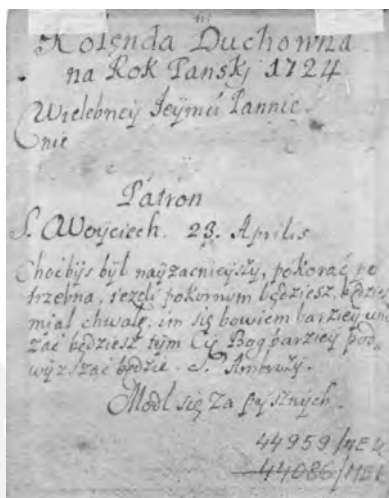 Kolenda Duchowna
na Rok Panskj 1724
Wielebney Jeymú Pannie
Patron
S. Woyciech. 23. Aprilis
Choćbyś był nayzacnieyszy, pokorać po
trzebna, jeżeli pokornym będziesz, będziesz
miał chwałę, im się bowiem barziey uni
zać będziesz tym Cię Bog barziey pod
wyzszać będzie. S. Ambroży.
Modl się za pysznych.
44959/MEK
44086/MEK